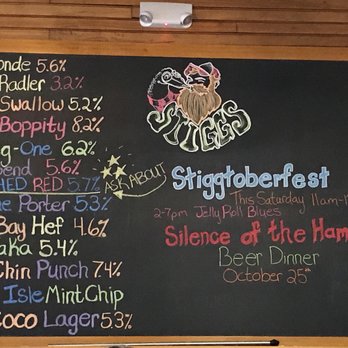 onde 5.6%
Radler 3.2%
Swallow 5.2%
Boppity 8.2%
g-One 6.2%
end 5.6%
HED RED 5.7%
e Porter 5.3%
Bay Hef 4.6%
aka 5.4%
Chin Punch 7.4%
Isle Mint Chip
Coco Lager 5.3%
STIGGS
ASK ABOUT
Stiggtoberfest
This Saturday 11am-1
2-7pm Jelly Roll Blues
Silence of the Ham
Beer Dinner
October 25th